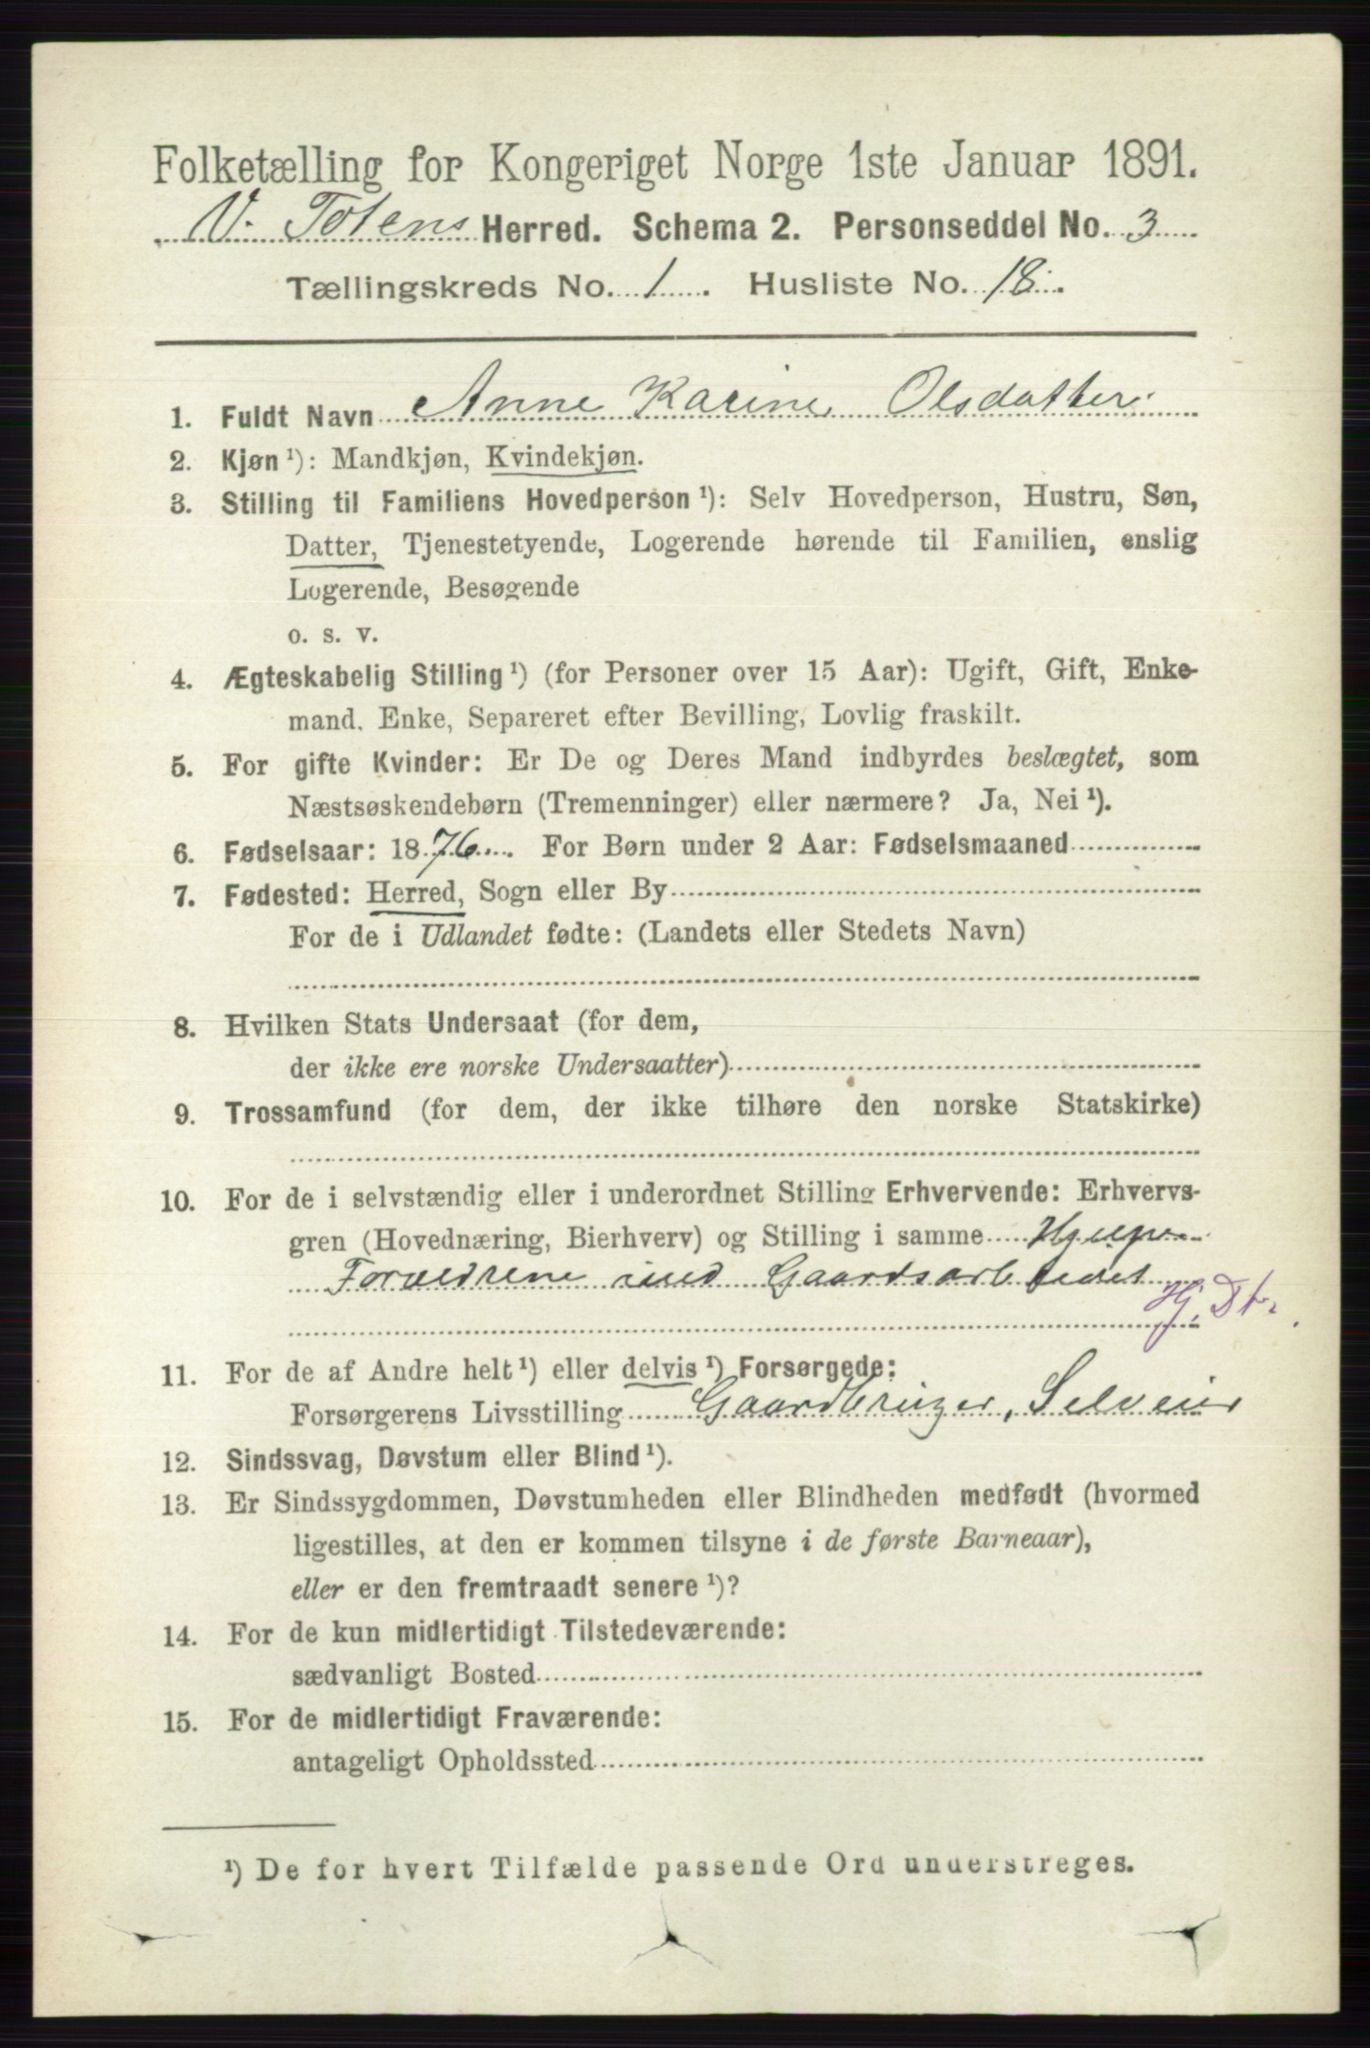 Folketælling for Kongeriget Norge 1ste Januar 1891.
V. Totens Herred. Schema 2. Personseddel No. 3
Tællingskreds No. 1. Husliste No. 18.
1. Fuldt Navn Anne Karine Olsdatter
2. Kjøn ¹): Mandkjøn, Kvindekjøn.
3. Stilling til Familiens Hovedperson ¹): Selv Hovedperson, Hustru, Søn,
Datter, Tjenestetyende, Logerende hørende til Familien, enslig
Logerende, Besøgende
o. s. v.
4. Ægteskabelig Stilling ¹) (for Personer over 15 Aar): Ugift, Gift, Enke-
mand, Enke, Separeret efter Bevilling, Lovlig fraskilt.
5. For gifte Kvinder: Er De og Deres Mand indbyrdes beslægtet, som
Næstsøskendebørn (Tremenninger) eller nærmere? Ja, Nei ¹).
6. Fødselsaar: 1876. For Børn under 2 Aar: Fødselsmaaned
7. Fødested: Herred, Sogn eller By
For de i Udlandet fødte: (Landets eller Stedets Navn)
8. Hvilken Stats Undersaat (for dem,
der ikke ere norske Undersaatter)
9. Trossamfund (for dem, der ikke tilhøre den norske Statskirke)
10. For de i selvstændig eller i underordnet Stilling Erhvervende: Erhvervs-
gren (Hovednæring, Bierhverv) og Stilling i samme Hjelper
Forældrene med Gaardsarbeidet
Hj. Dtr.
11. For de af Andre helt ¹) eller delvis ¹) Forsørgede:
Forsørgerens Livsstilling Gaardbruger, Selveier
12. Sindssvag, Døvstum eller Blind ¹).
13. Er Sindssygdommen, Døvstumheden eller Blindheden medfødt (hvormed
ligestilles, at den er kommen tilsyne i de første Barneaar),
eller er den fremtraadt senere ¹)?
14. For de kun midlertidigt Tilstedeværende:
sædvanligt Bosted
15. For de midlertidigt Fraværende:
antageligt Opholdssted
¹) De for hvert Tilfælde passende Ord understreges.